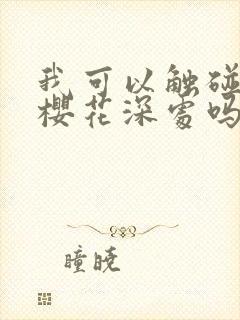 我可以触碰
樱花深处吗
瞳晓